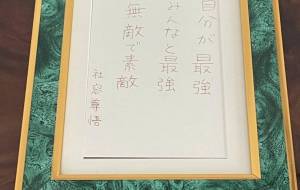 自分が最強
みんなと最強
無敵で素敵
社忍尊悟